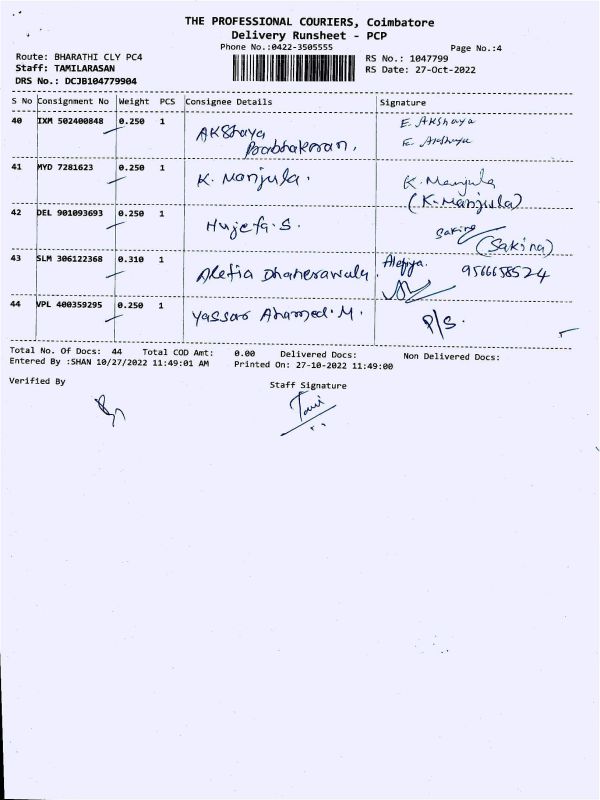 THE PROFESSIONAL COURIERS, Coimbatore
Delivery Runsheet - PCP
Phone No.:0422-3505555
Page No.:4
Route: BHARATHI CLY PC4
RS No.: 1047799
Staff: TAMILARASAN
RS Date: 27-Oct-2022
DRS No.: DCJB104779904
S No Consignment No Weight PCS Consignee Details Signature
40 IXM 502400848 0.250 1 AKShaya E. AKShaya
Prabhakaran.
41 MYD 7281623 0.250 1 K. Manjula. K. Manjula
(K. Manjula)
42 DEL 901093693 0.250 1 Hujefa. S. Sakina (Sakina)
43 SLM 306122368 0.310 1 Alefia Dhanerawala. Alefiya. 9566658524
44 VPL 400359295 0.250 1 Yassar Ahamed. M. P/S.
Total No. Of Docs: 44 Total COD Amt: 0.00 Delivered Docs: Non Delivered Docs:
Entered By :SHAN 10/27/2022 11:49:01 AM Printed On: 27-10-2022 11:49:00
Verified By Staff Signature